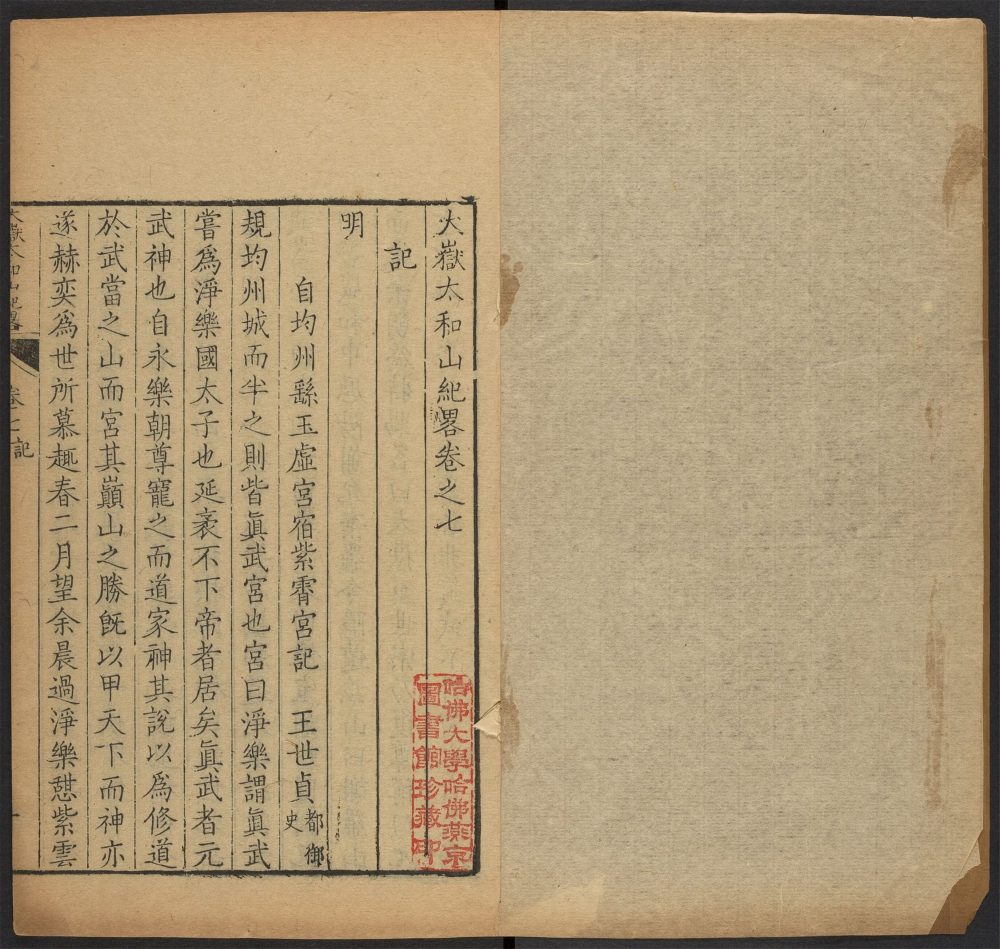 大嶽太和山紀畧卷之七
記
明
自均州繇玉虛宮宿紫霄宮記 王世貞 都御史
規均州城而半之則皆眞武宮也宮曰淨樂謂眞武
嘗爲淨樂國太子也延袤不下帝者居矣眞武者元
武神也自永樂朝尊寵之而道家神其說以爲修道
於武當之山而宮其巓山之勝旣以甲天下而神亦
遂赫奕爲世所慕趣春二月望余晨過淨樂憇紫雲
大嶽太和山紀畧 卷七 記 一
哈佛大學哈佛燕京
圖書館珍藏印